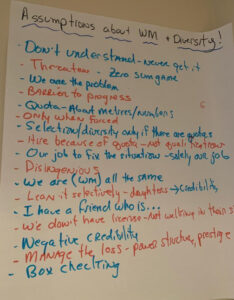 Assumptions about WM + Diversity!
- Don't understand - never get it
- Threaten - Zero sum game
- We are the problem
- Barrier to progress
- Quota - About metrics/numbers
- Only when forced
- Selection/diversity only if there are quotas
- Hire because of quota - not qualifications
- Our job to fix the situation - solely our job
- Disingenuous
- We are (WM) all the same
- Lean it selectively - daughters → credibility
- I have a friend who is...
- We don't have license - not walking in their s
- Negative credibility
- Manage the loss - power structure, prestige
- Box checking